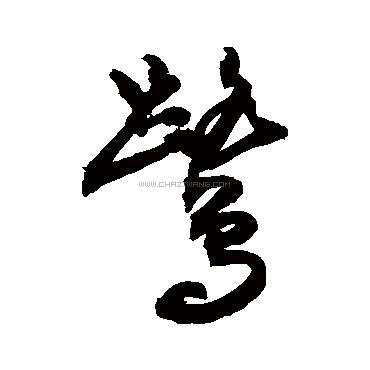 鷙
WWW.CHAZIWANG.COM